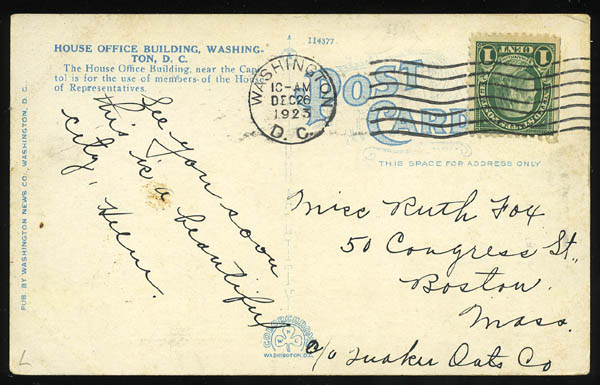 114377
HOUSE OFFICE BUILDING, WASHING-
TON, D. C.
The House Office Building, near the Capi-
tol is for the use of members of the House
of Representatives.
WASHINGTON
10-AM
DEC 26
1923
D. C.
POST
CARD
1 CENT 1
THIS SPACE FOR ADDRESS ONLY
See you soon
this is a beautiful
city,
Helen.
Miss Ruth Fox
50 Congress St.,
Boston.
Mass.
c/o Quaker Oats Co
PUB. BY WASHINGTON NEWS CO., WASHINGTON, D. C.
WASHINGTON, D.C.